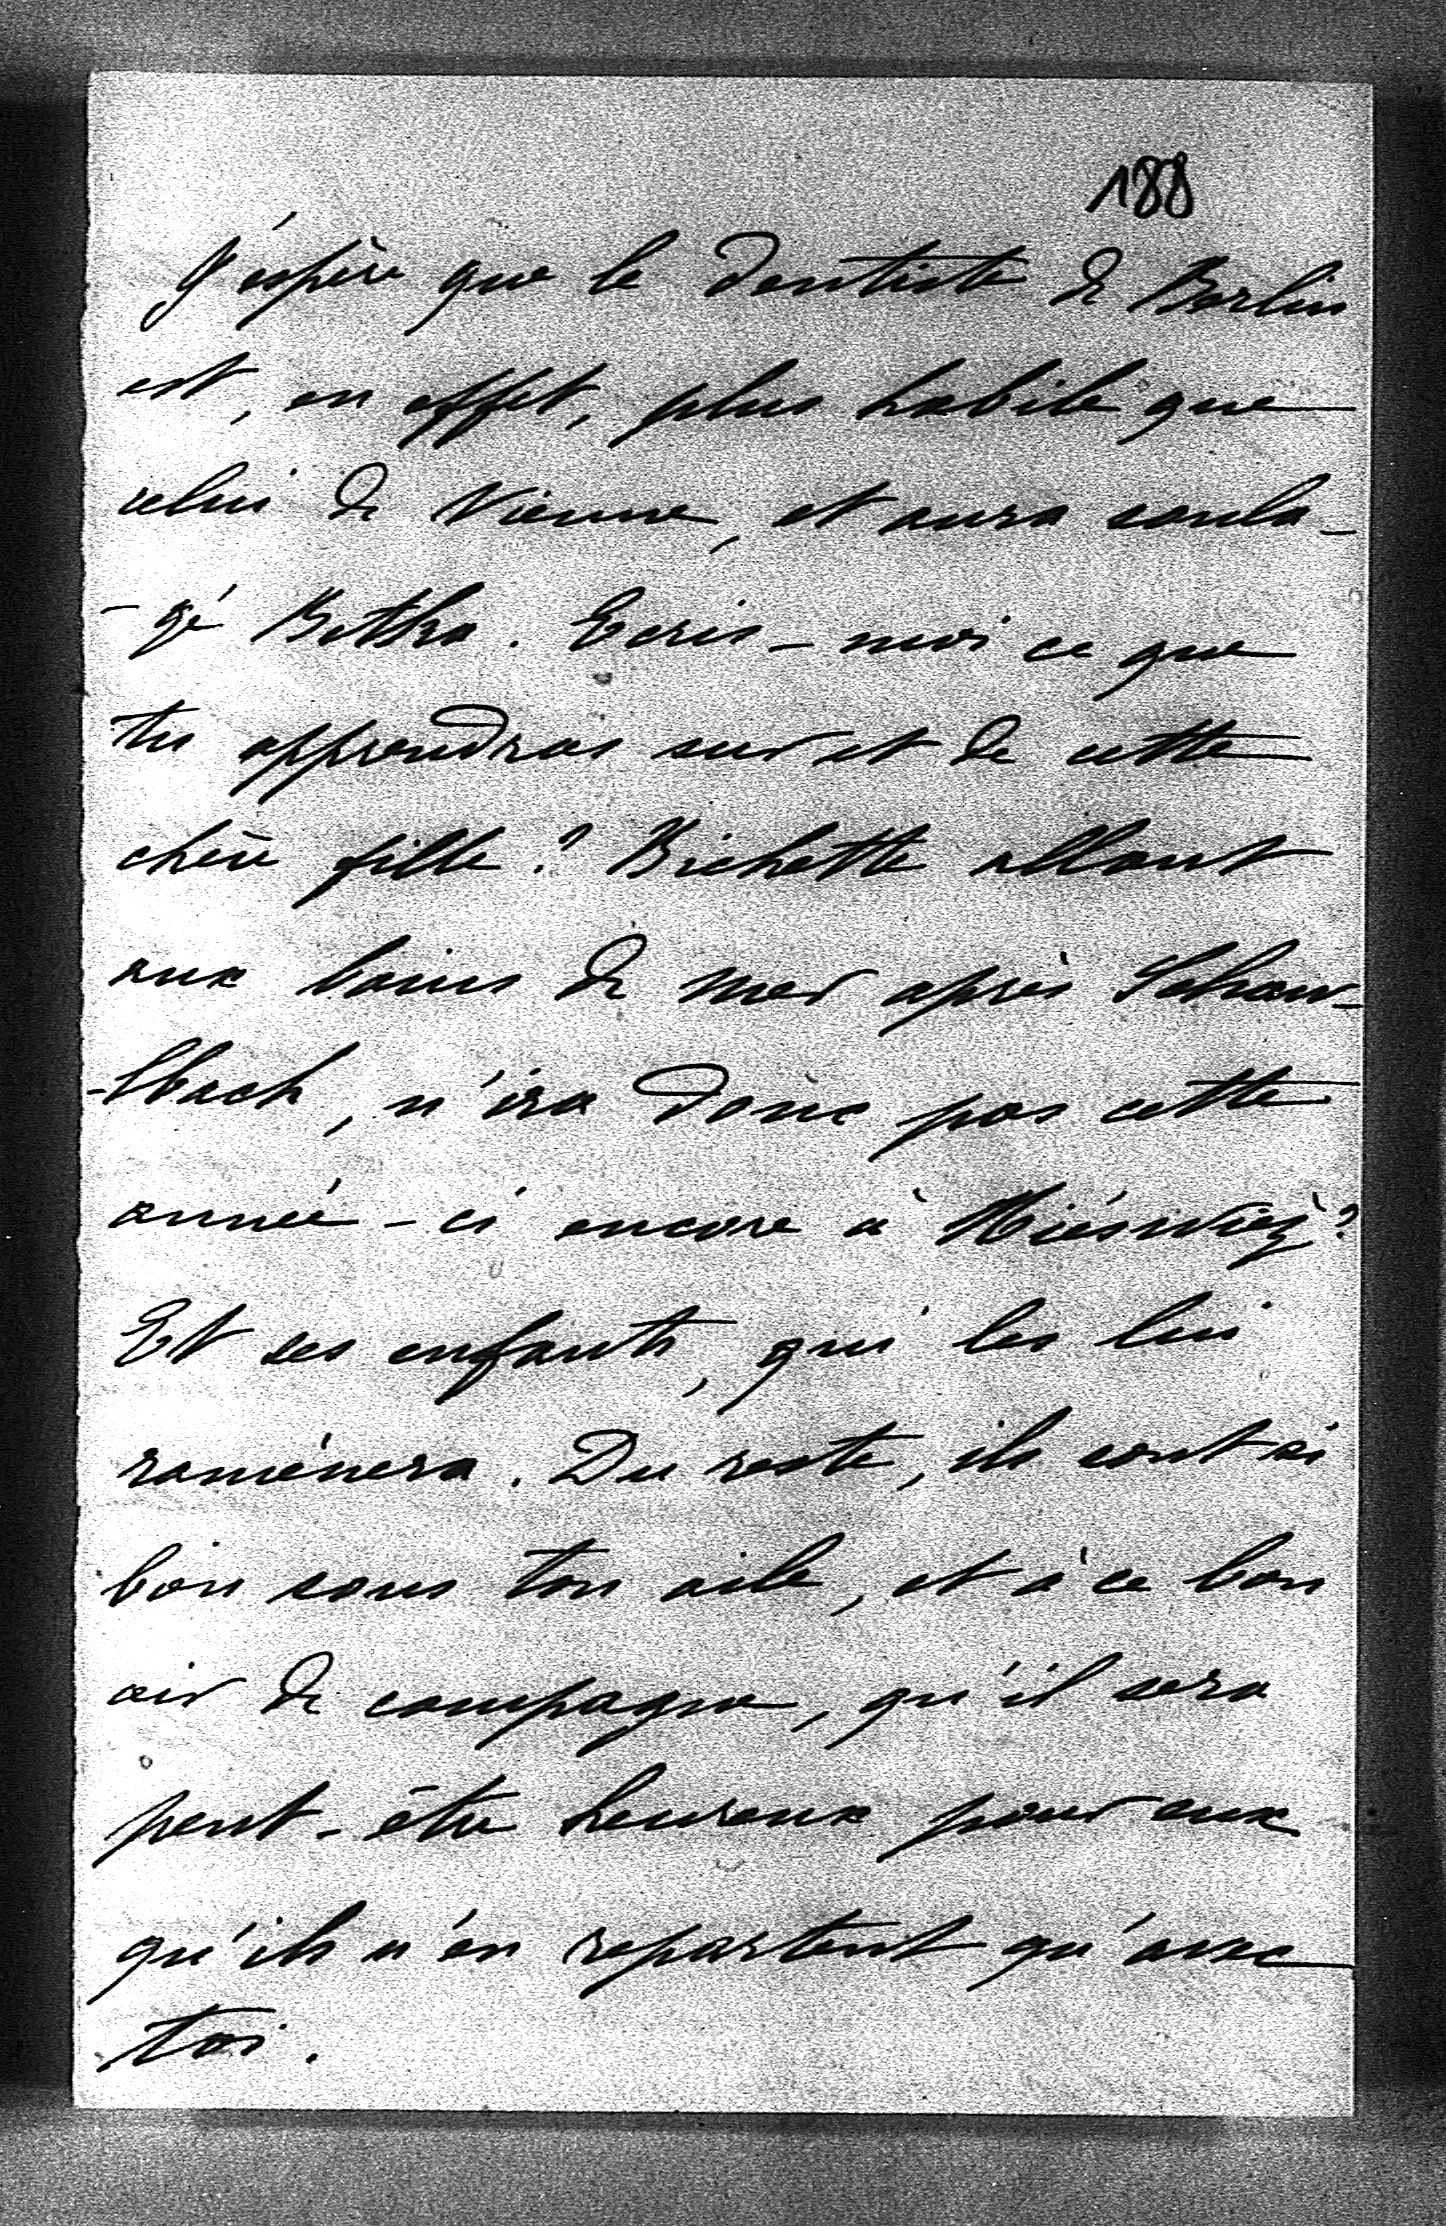 188
J'espère que le dentiste de Berlin
est, en effet, plus habile que
celui de Vienne, et aura soula-
-gé Betka. Ecris-moi ce que
tu apprendras sur et de cette
chère fille? Bichette allant
aux bains de mer après Schow-
-lbach, n'ira donc pas cette
année-ci encore à Niéswież?
Et ses enfants, qui les lui
ramènera. Du reste, ils sont si
bien sous ton aile, et à ce bon
air de campagne, qu'il sera
peut-être heureux pour eux
qu'ils n'en repartent qu'avec
toi.